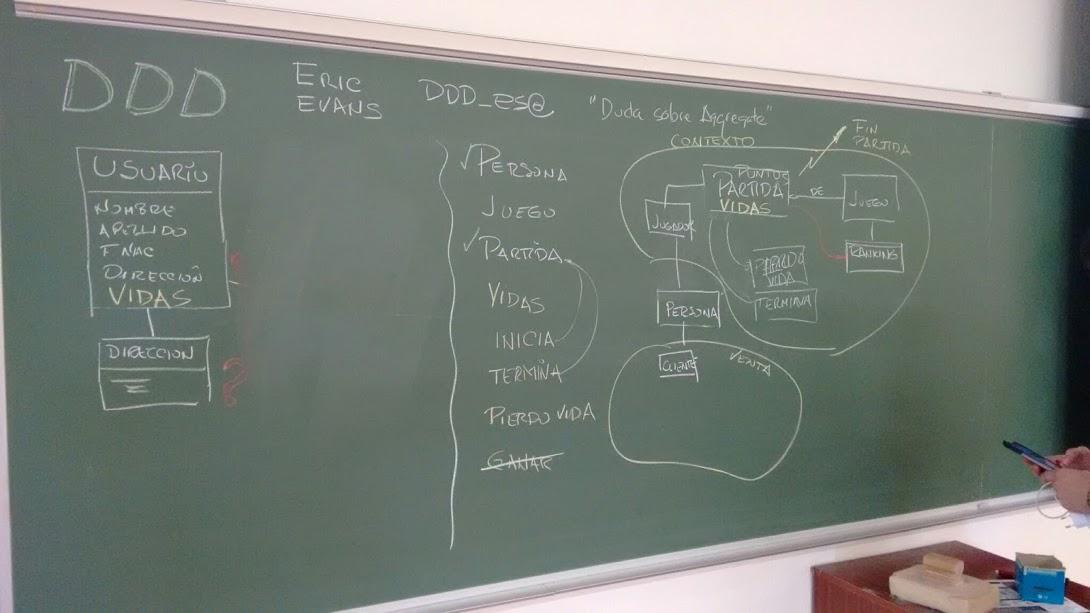 DDD
ERIC
EVANS
DDD_es@
"Duda sobre Aggregate"
USUARIO
NOMBRE
APELLIDO
FNAC
DIRECCIÓN
VIDAS
DIRECCION
✓PERSONA
JUEGO
✓PARTIDA
VIDAS
INICIA
TERMINA
PIERDO VIDA
GANAR
CONTEXTO
FIN
PARTIDA
PUNTOS
PARTIDA
VIDAS
DE
JUEGO
JUGADOR
RANKING
VIDA
TERMINA
PERSONA
CLIENTE
VENTA